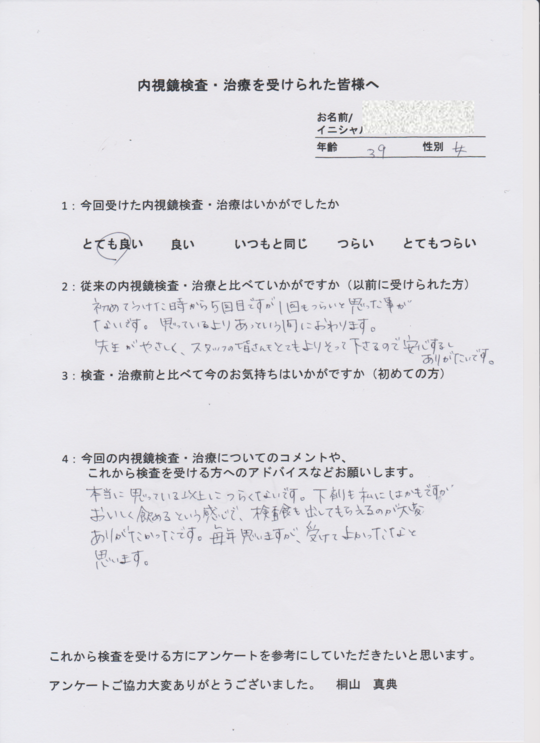 内視鏡検査・治療を受けられた皆様へ
お名前/
イニシャル
年齢 39 性別 女
1:今回受けた内視鏡検査・治療はいかがでしたか
とても良い 良い いつもと同じ つらい とてもつらい
2:従来の内視鏡検査・治療と比べていかがですか(以前に受けられた方)
初めてうけた時から5回目ですが1回もつらいと思った事が
ないです。思っているよりあっという間におわります。
先生がやさしく、スタッフの皆さんもとてもよりそって下さるので安心するし
ありがたいです。
3:検査・治療前と比べて今のお気持ちはいかがですか(初めての方)
4:今回の内視鏡検査・治療についてのコメントや、
これから検査を受ける方へのアドバイスなどお願いします。
本当に思っている以上につらくないです。下剤も私にはかもですが
おいしく飲めるという感じで、検査食も出してもらえるのが大変
ありがたかったです。毎年思いますが、受けてよかったなと
思います。
これから検査を受ける方にアンケートを参考にしていただきたいと思います。
アンケートご協力大変ありがとうございました。 桐山 真典